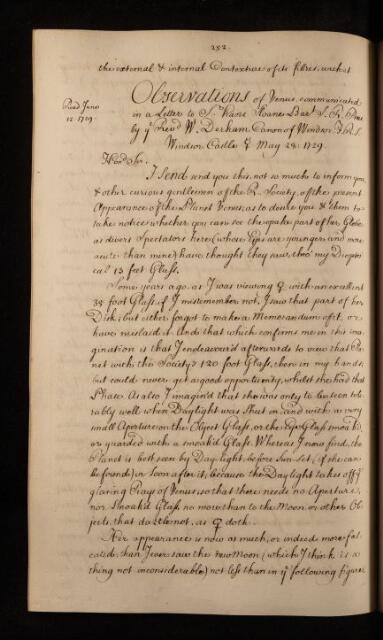 252.
the external & internal Contexture of its fibres, with
Observations of Venus, communicated
Read June
12 1729
in a Letter to Sr. Hans Sloane Bart. S. R. Præs
by ye Revd W. Derham Canon of Windsor & F.R.S.
Windsor Castle ☿ May 28. 1729.
Hond Sr.
I Send you this, not so much to inform you
& other curious gentlemen of the R. Society, of the present
Appearance of the Planet Venus, as to desire you & them to
take notice whether you can see the opake part of her Globe
as divers Spectators here (whose Eyes are younger and more
acute than mine) have thought they saw, thro' my Dioptri
cal 13 feet Glass.
Some years ago, as I was viewing ♀ with an excellent
34 foot Glass, if I misremember not, I saw that part of her
Disk, but either forgot to make a Memorandum of it, or
have mislaid it. And that which confirms me in this ima
gination is that I endeavour'd afterwards to view that Pla
net with the Society's 120 foot Glass, then in my hands,
but could never get a good opportunity, whilst she had that
Phase. As also I imagin'd that she was only to be seen tole
rably well when Daylight was shut in, and with a very
small Aperture on the Object Glass, or the Eye Glass smoak'd,
or guarded with a smoak'd Glass. Whereas I now find, the
Planet is best seen by Day light, before Sun set, (if she can
be found) or soon after it, because the Daylight takes off ye
glaring Rays of Venus, so that there needs no Aperture,
nor Smoak'd Glass, no more than to the Moon or other Ob
jects, that dazle not, as ♀ doth.
Her appearance is now as much, or indeed more fal
cated, than I ever saw the new Moon, (which I think is a
thing not inconsiderable) not less than in ye following figure